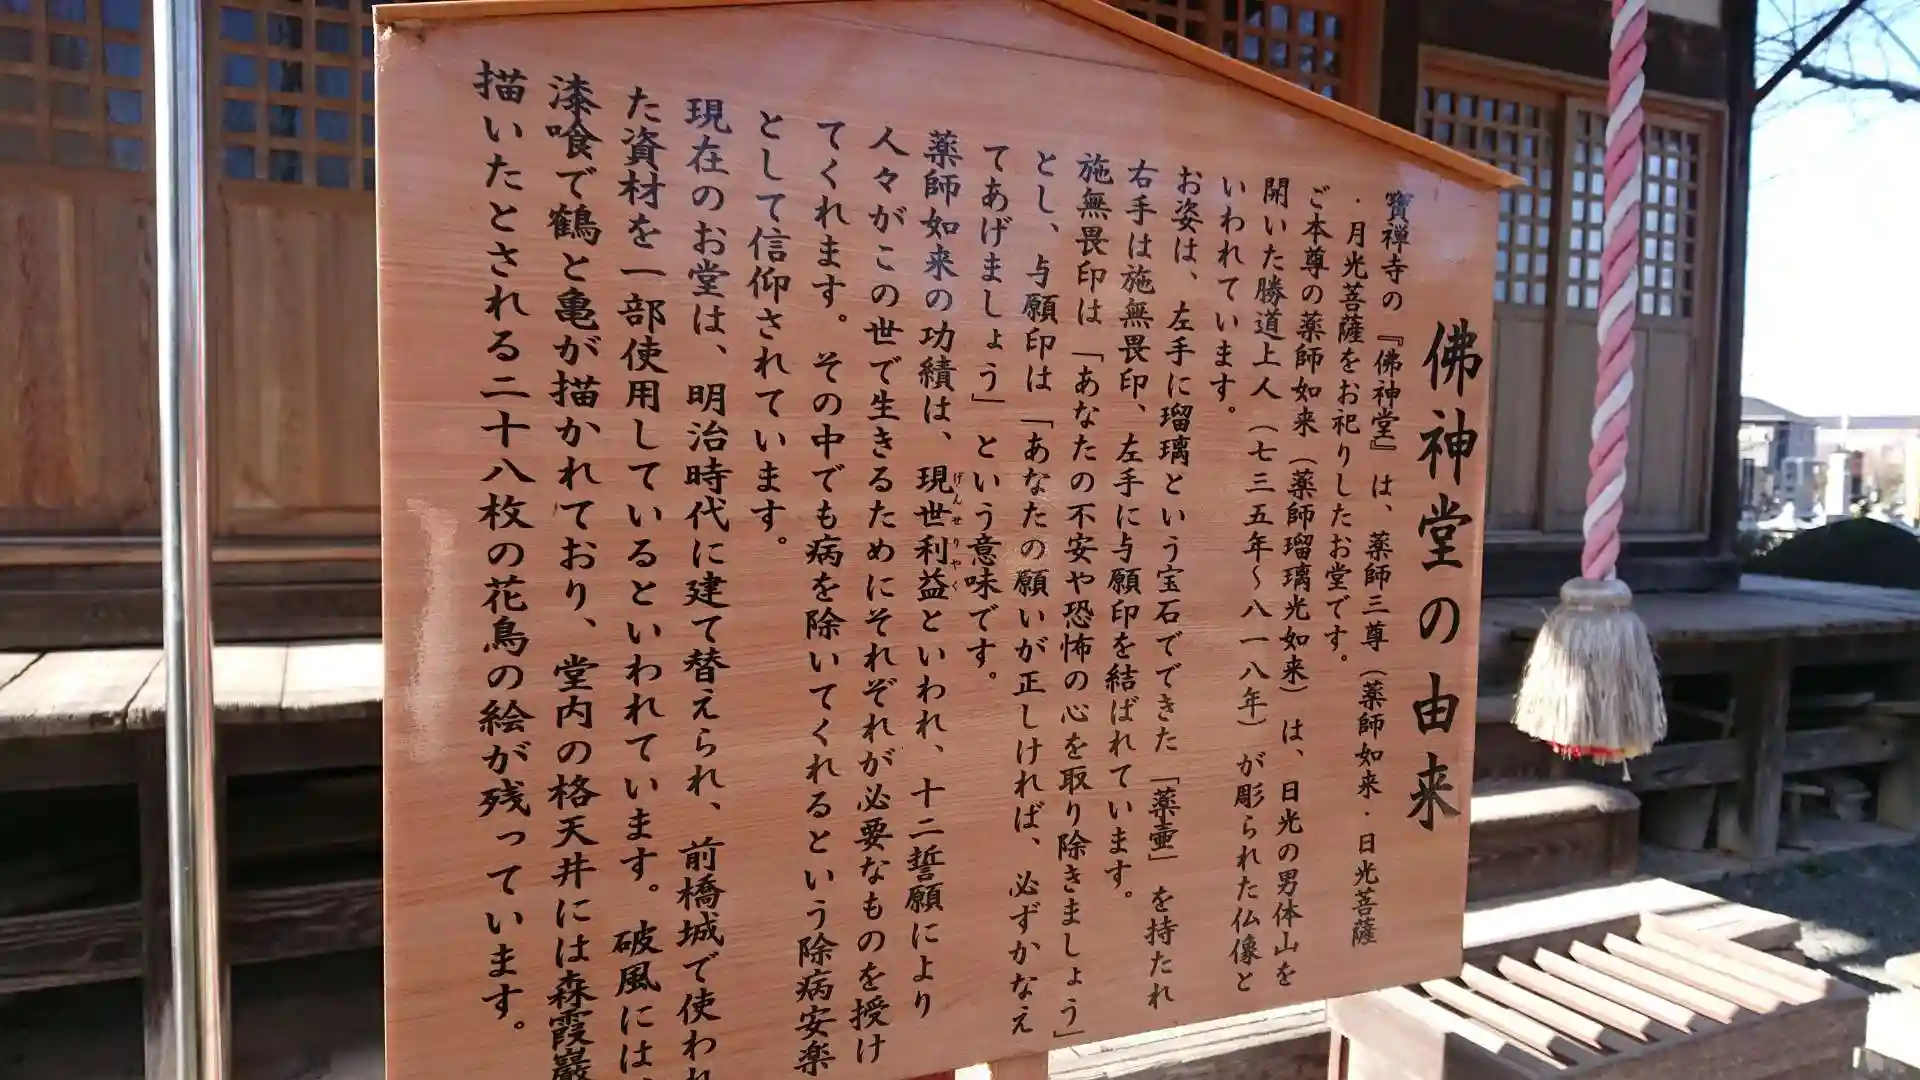 佛神堂の由来
寶禅寺の『佛神堂』は、薬師三尊（薬師如来・日光菩薩
・月光菩薩をお祀りしたお堂です。
ご本尊の薬師如来（薬師瑠璃光如来）は、日光の男体山を
開いた勝道上人（七三五年～八一八年）が彫られた仏像と
いわれています。
お姿は、左手に瑠璃という宝石でできた「薬壷」を持たれ
右手は施無畏印、左手に与願印を結ばれています。
施無畏印は「あなたの不安や恐怖の心を取り除きましょう」
とし、与願印は「あなたの願いが正しければ、必ずかなえ
てあげましょう」という意味です。
薬師如来の功績は、現世利益といわれ、十二誓願により
げんせりやく
人々がこの世で生きるためにそれぞれが必要なものを授け
てくれます。その中でも病を除いてくれるという除病安楽
として信仰されています。
現在のお堂は、明治時代に建て替えられ、前橋城で使われ
た資材を一部使用しているといわれています。破風には、
漆喰で鶴と亀が描かれており、堂内の格天井には森霞巖
描いたとされる二十八枚の花鳥の絵が残っています。